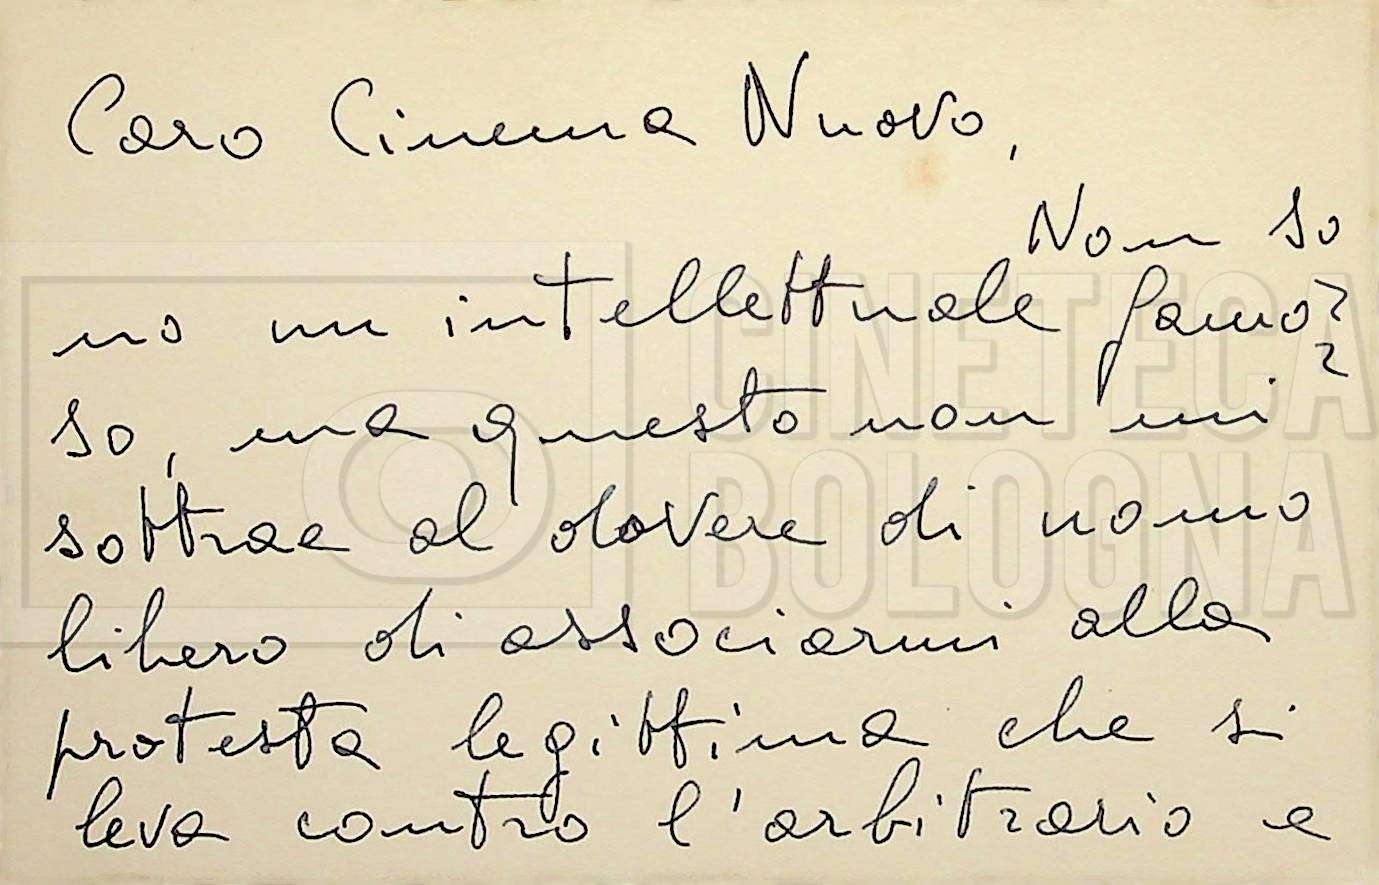 Caro Cinema Nuovo,
Non so
no un intellettuale famo
so, ma questo non mi
sottrae al dovere di uomo
libero di associarmi alla
protesta legittima che si
leva contro l'arbitrario e
CINETECA
BOLOGNA